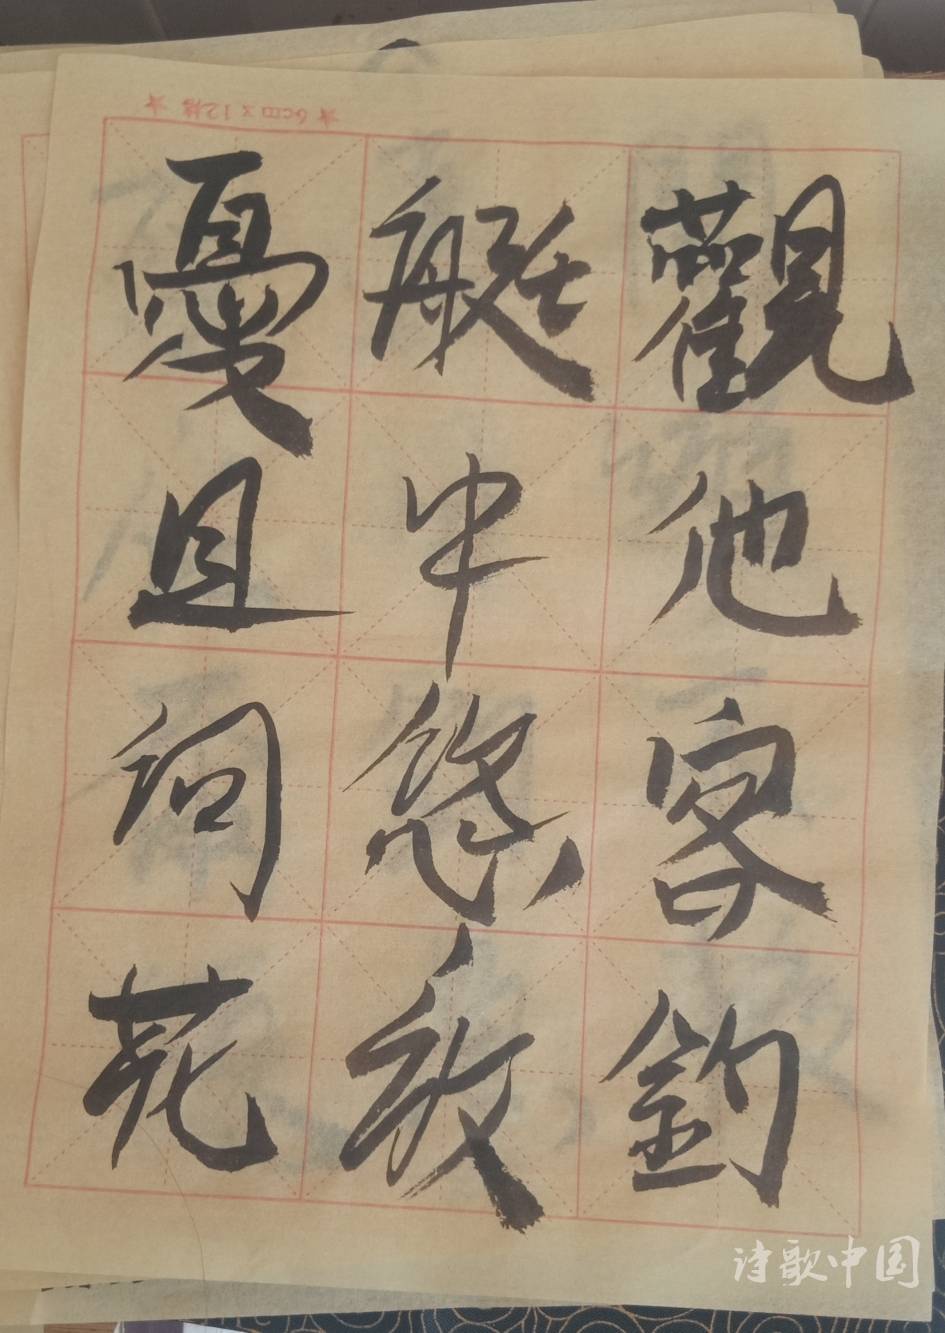 觀他客釣
艇中悠放
憂且問花
☆6cm×12格☆
诗歌中国